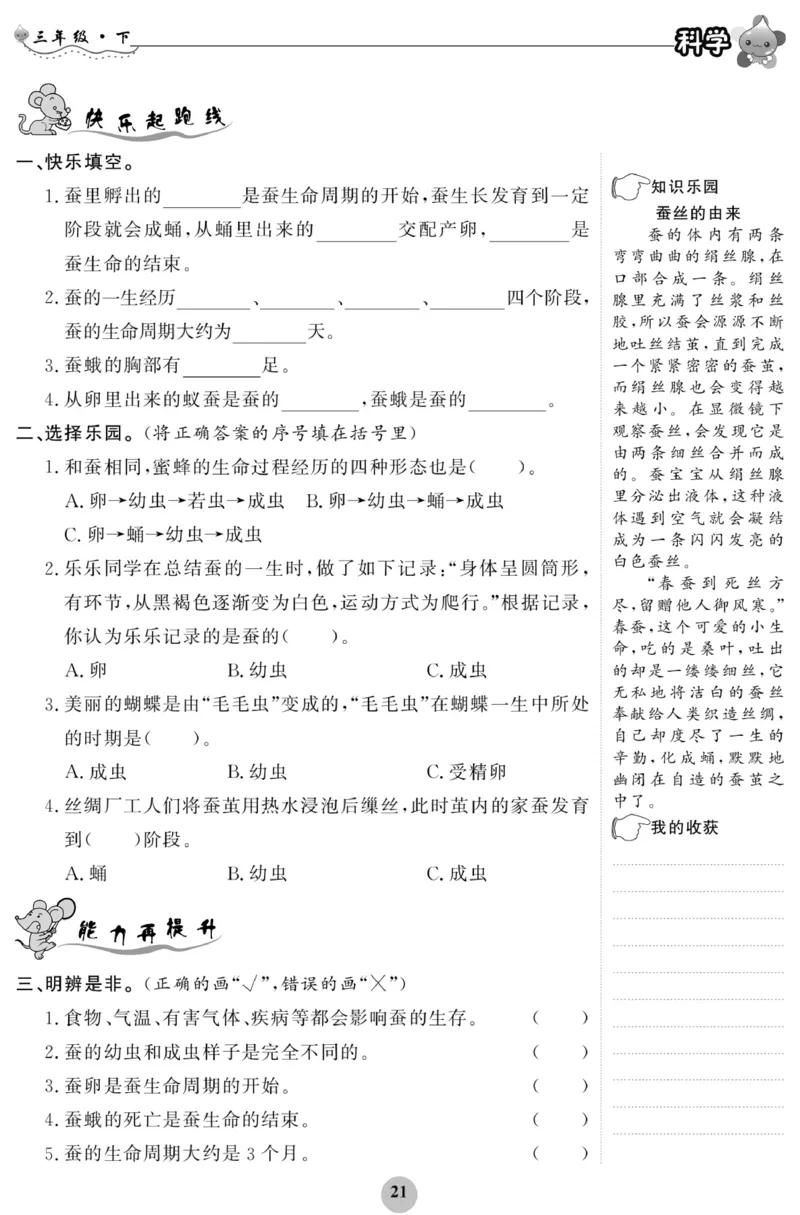 三年级·下
科学
快乐起跑线
一、快乐填空。
1.蚕里孵出的________是蚕生命周期的开始,蚕生长发育到一定
阶段就会成蛹,从蛹里出来的________交配产卵,________是
蚕生命的结束。
2.蚕的一生经历________、________、________、________四个阶段,
蚕的生命周期大约为________天。
3.蚕蛾的胸部有________足。
4.从卵里出来的蚁蚕是蚕的________,蚕蛾是蚕的________。
二、选择乐园。(将正确答案的序号填在括号里)
1.和蚕相同,蜜蜂的生命过程经历的四种形态也是(    )。
A.卵→幼虫→若虫→成虫  B.卵→幼虫→蛹→成虫
C.卵→蛹→幼虫→成虫
2.乐乐同学在总结蚕的一生时,做了如下记录:“身体呈圆筒形,
有环节,从黑褐色逐渐变为白色,运动方式为爬行。”根据记录,
你认为乐乐记录的是蚕的(    )。
A.卵  B.幼虫  C.成虫
3.美丽的蝴蝶是由“毛毛虫”变成的,“毛毛虫”在蝴蝶一生中所处
的时期是(    )。
A.成虫  B.幼虫  C.受精卵
4.丝绸厂工人们将蚕茧用热水浸泡后缫丝,此时茧内的家蚕发育
到(    )阶段。
A.蛹  B.幼虫  C.成虫
能力再提升
三、明辨是非。(正确的画“√”,错误的画“╳”)
1.食物、气温、有害气体、疾病等都会影响蚕的生存。 (    )
2.蚕的幼虫和成虫样子是完全不同的。 (    )
3.蚕卵是蚕生命周期的开始。 (    )
4.蚕蛾的死亡是蚕生命的结束。 (    )
5.蚕的生命周期大约是3个月。 (    )
知识乐园
蚕丝的由来
蚕的体内有两条
弯弯曲曲的绢丝腺,在
口部合成一条。绢丝
腺里充满了丝浆和丝
胶,所以蚕会源源不断
地吐丝结茧,直到完成
一个紧紧密密的蚕茧,
而绢丝腺也会变得越
来越小。在显微镜下
观察蚕丝,会发现它是
由两条细丝合并而成
的。蚕宝宝从绢丝腺
里分泌出液体,这种液
体遇到空气就会凝结
成为一条闪闪发亮的
白色蚕丝。
“春蚕到死丝方
尽,留赠他人御风寒。”
春蚕,这个可爱的小生
命,吃的是桑叶,吐出
的却是一缕缕细丝,它
无私地将洁白的蚕丝
奉献给人类织造丝绸,
自己却度尽了一生的
辛勤,化成蛹,默默地
幽闭在自造的蚕茧之
中了。
我的收获
21